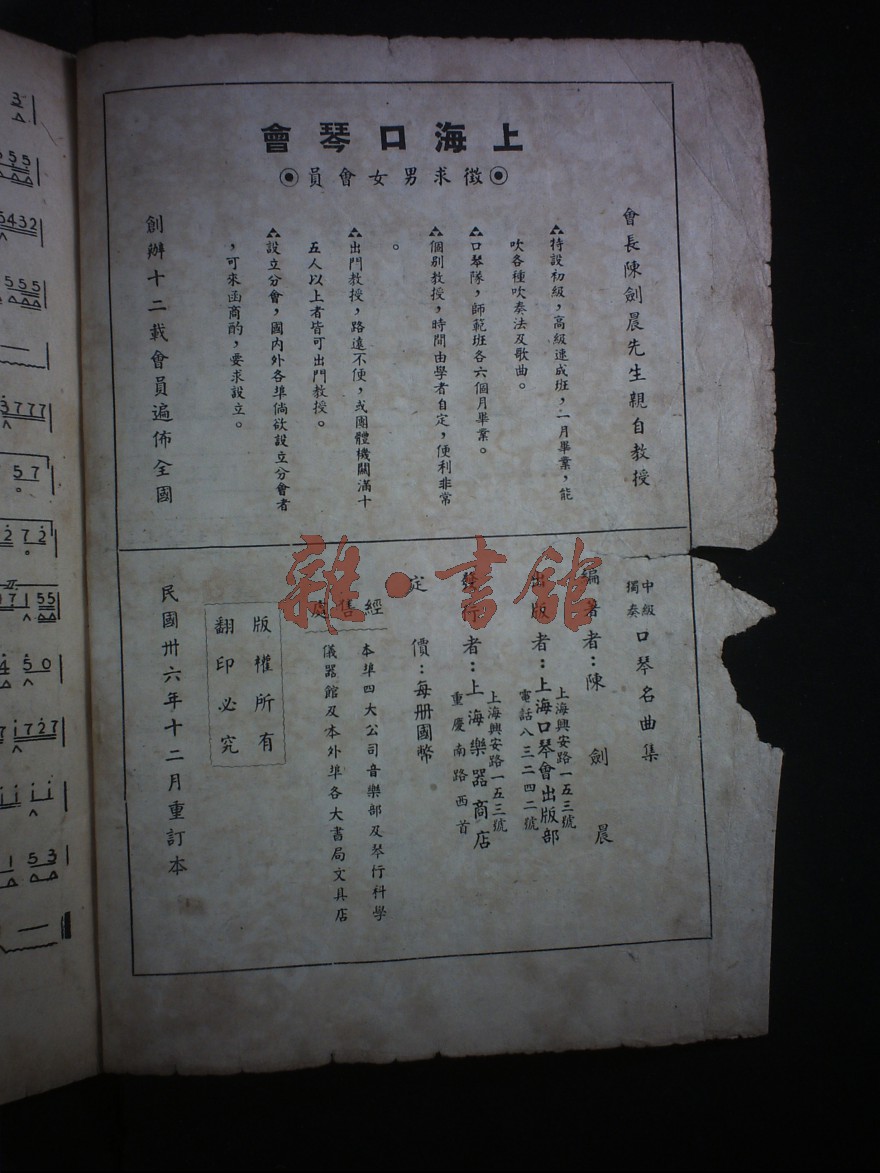 上海口琴會
◉徵求男女會員◉
會長陳劍晨先生親自教授
特設初級，高級速成班，二月畢業，能
吹各種吹奏法及歌曲。
口琴隊，師範班各六個月畢業。
個別教授，時間由學者自定，便利非常
。
出門教授，路遠不便，或團體機關滿十
五人以上者皆可出門教授。
設立分會，國內外各埠倘欲設立分會者
，可來函商酌，要求設立。
創辦十二載會員遍佈全國
中級
獨奏
口琴名曲集
編著者：陳劍晨
上海興安路一五三號
出版者：上海口琴會出版部
電話八三二四二號
上海興安路一五三號
發行者：上海樂器商店
重慶南路西首
定價：每册國幣
經售處
本埠四大公司音樂部及琴行科學
儀器館及本外埠各大書局文具店
版權所有
翻印必究
民國卅六年十二月重訂本
雜·書館
3
555
5432
555
3777
57
2 7 2
0 7 1 55
4 5 0
7 1 7 2 7
1 53